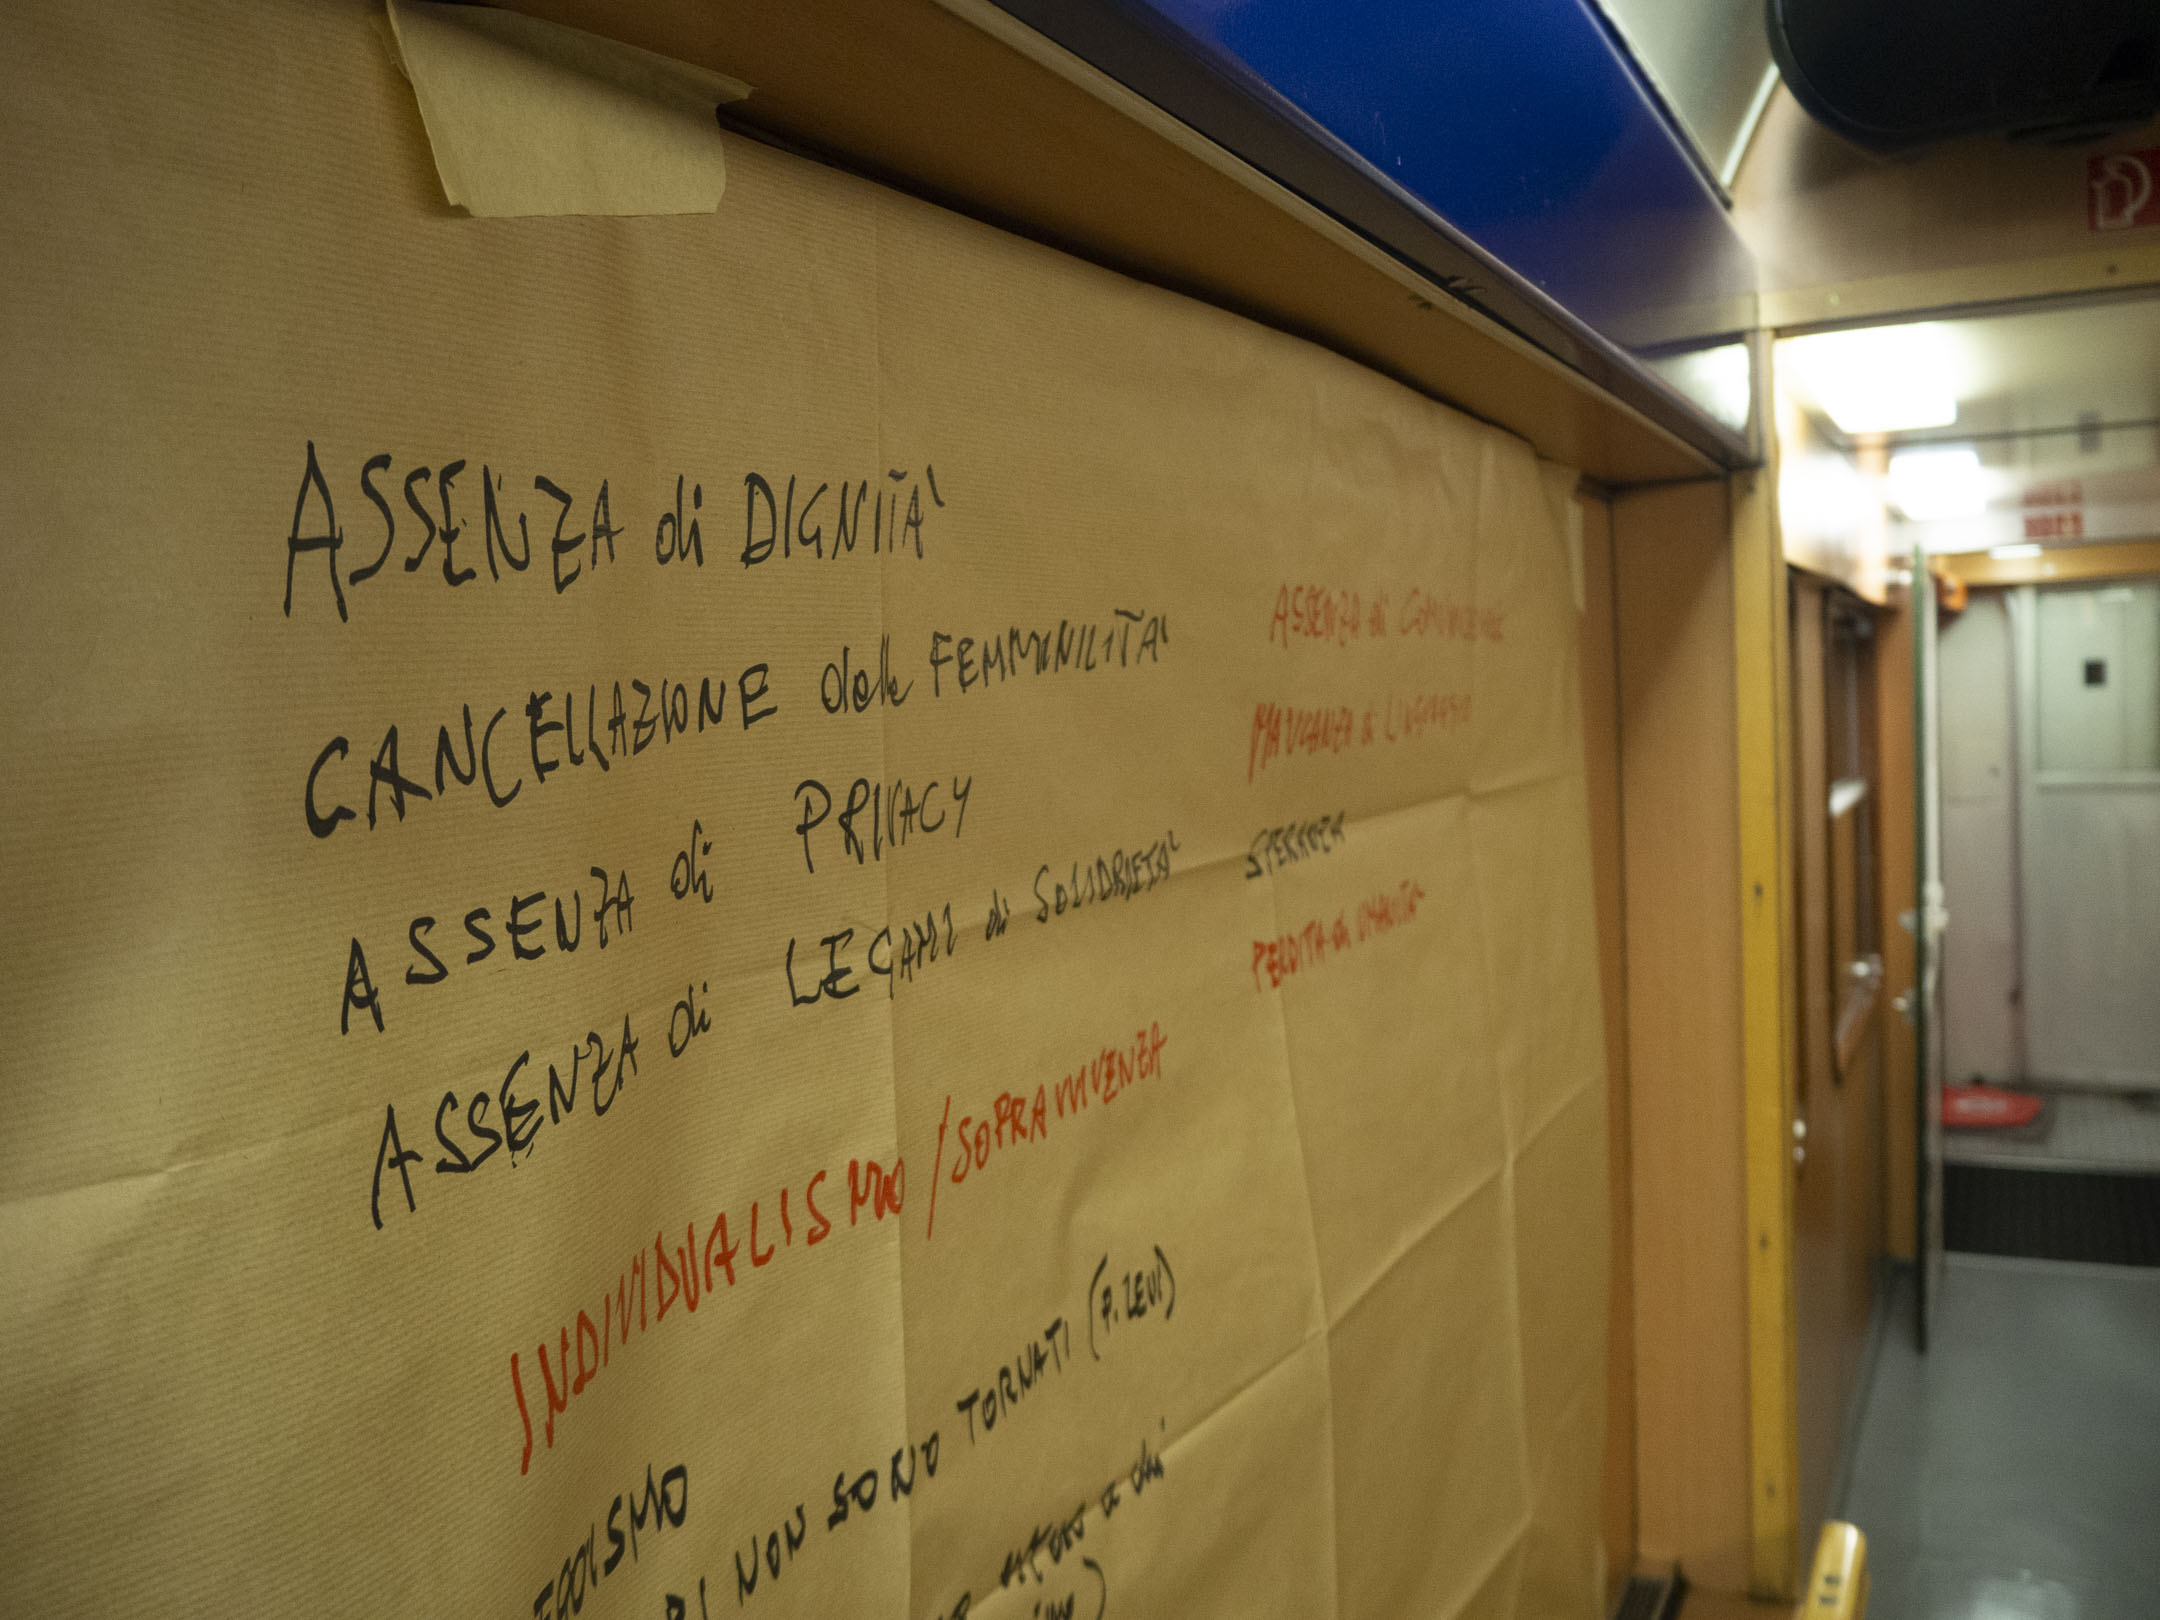 ASSENZA di DIGNITA'
CANCELLAZIONE della FEMMINILITA'
ASSENZA di PRIVACY
ASSENZA di LEGAMI di SOLIDARIETA'
INDIVIDUALISMO / SOPRAVVIVENZA
EGOISMO
NON SONO TORNATI (P. LEVI)
a chi
ASSENZA di
MANCANZA di LINGUAGGIO
SPERANZA
PERDITA di UMANITA'